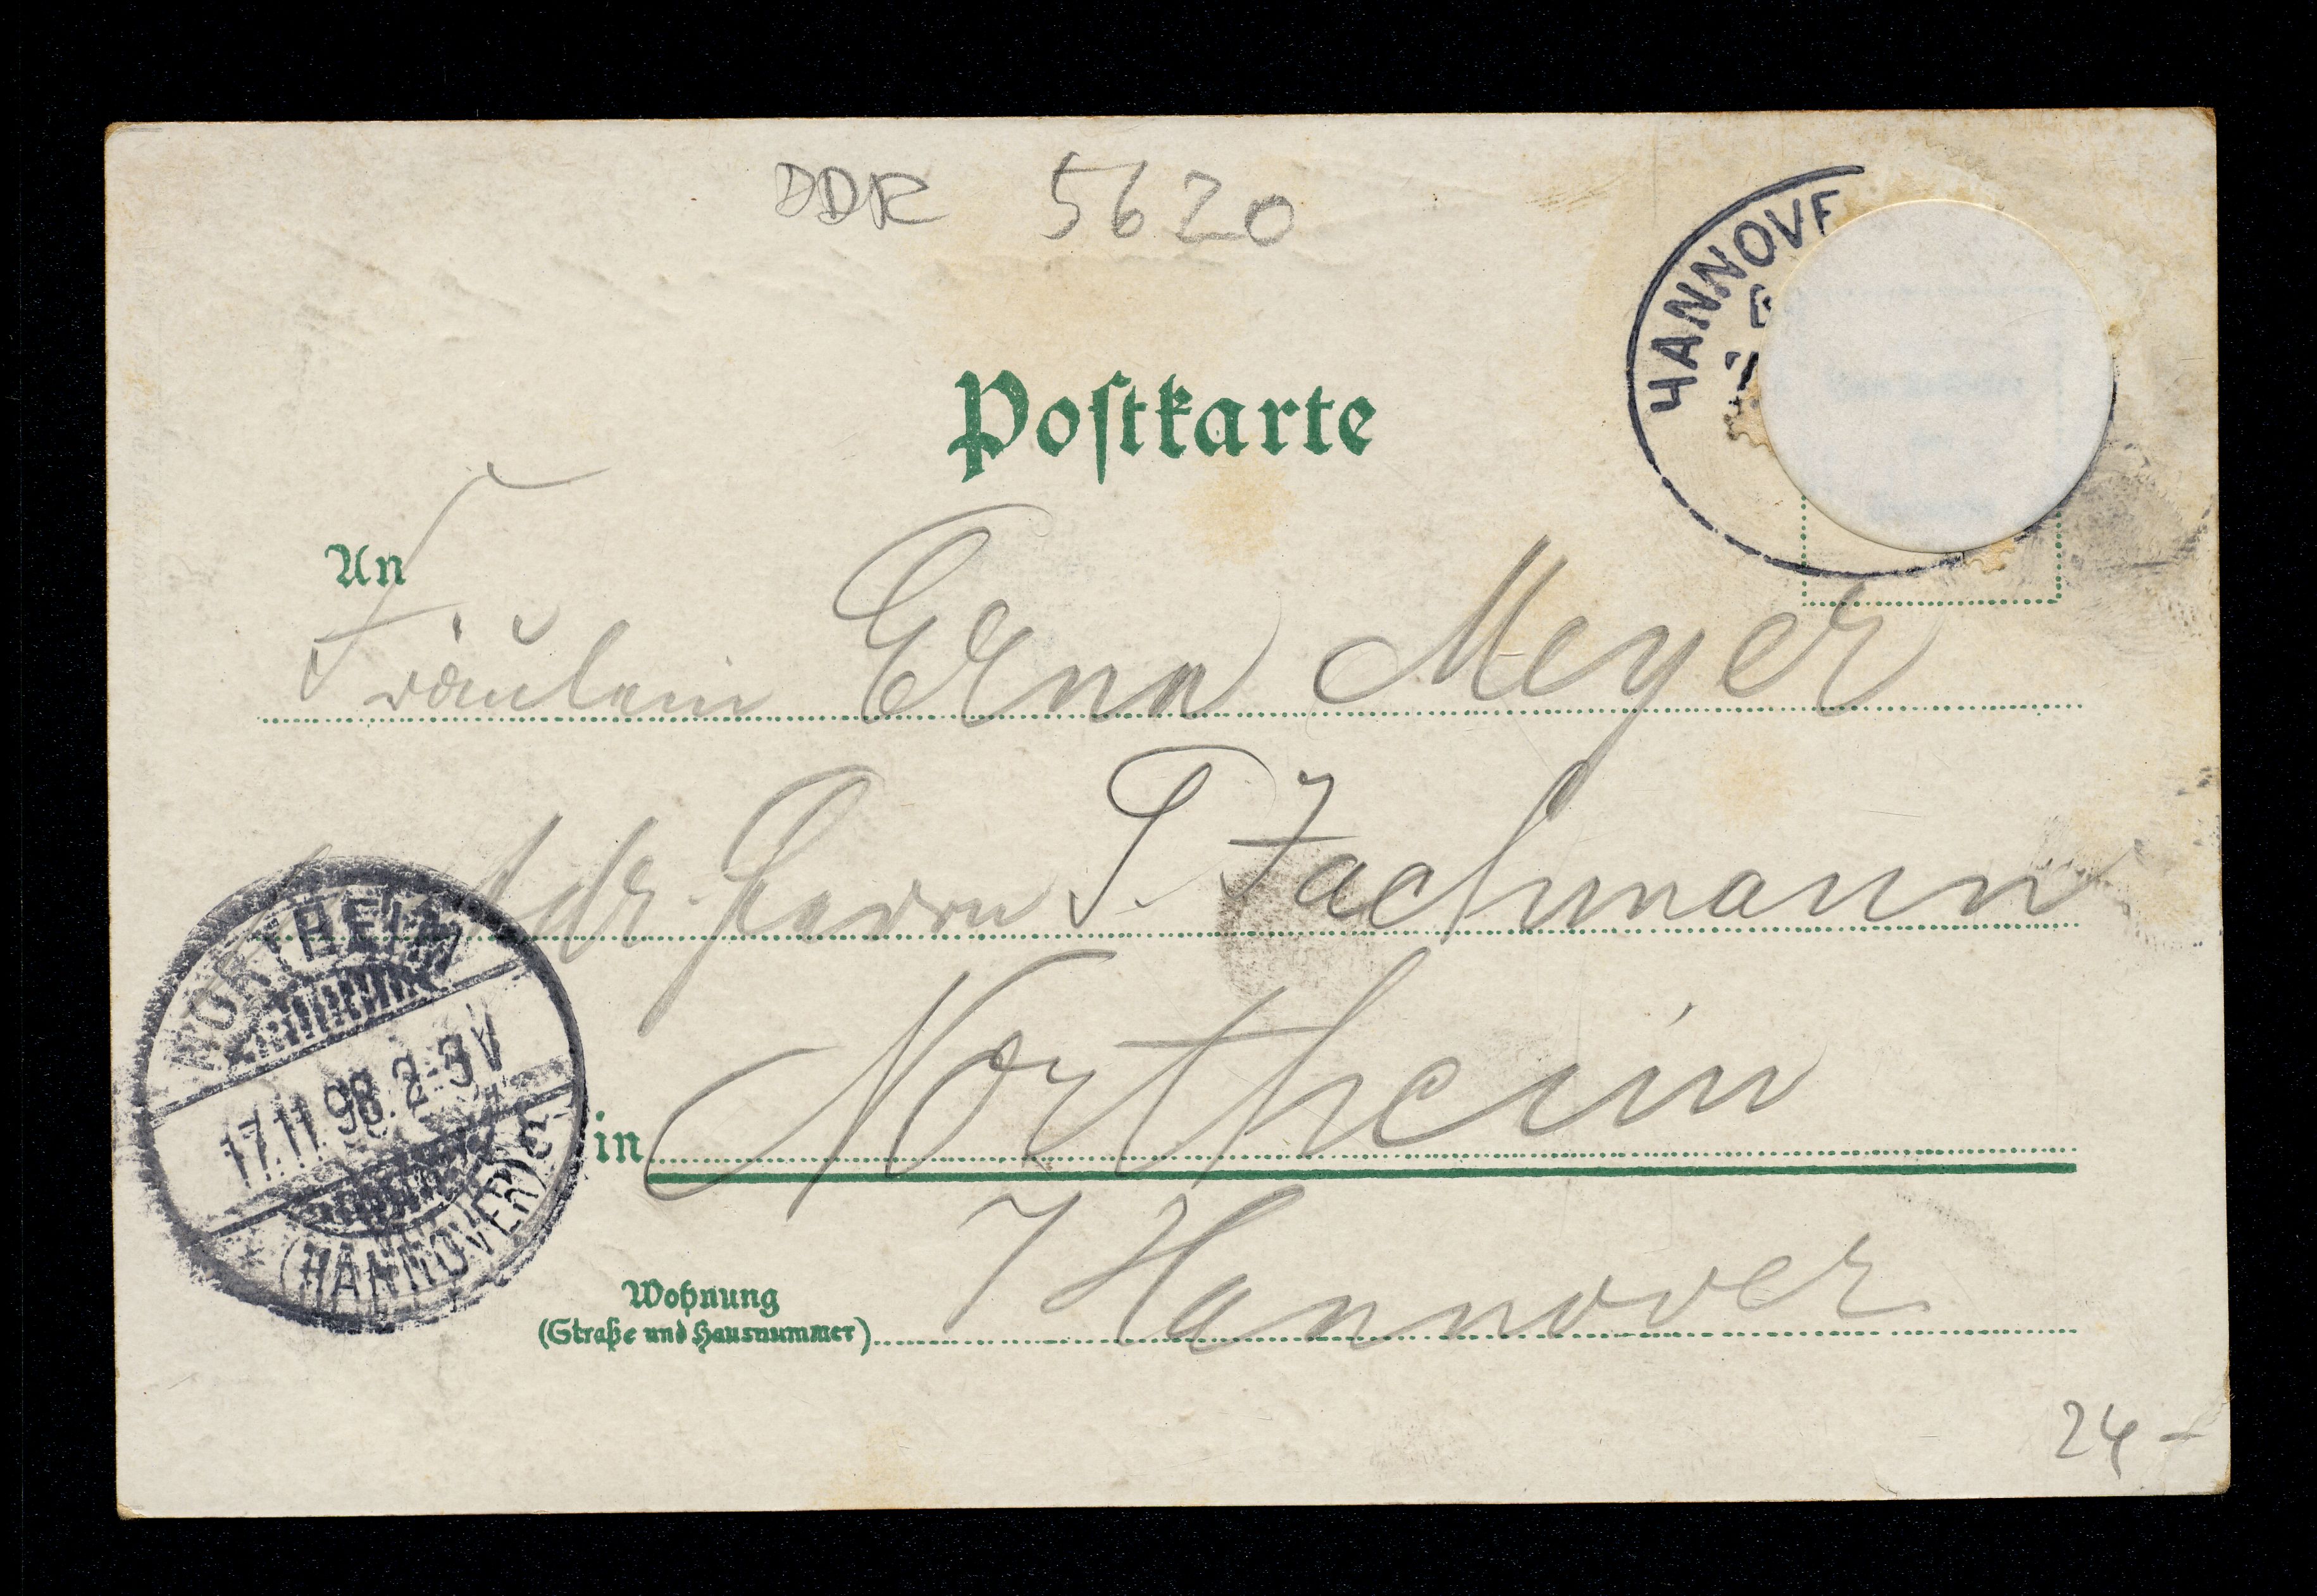 DDR 5620
HANNOVE
Postkarte
An
Fräulein Erna Meyer
Adr. Herrn P. Fachmann
NORTHEIM
17.11.98. 2-3V
(HANNOVER)
in Northeim
/ Hannover
Wohnung
(Straße und Hausnummer)
24 -